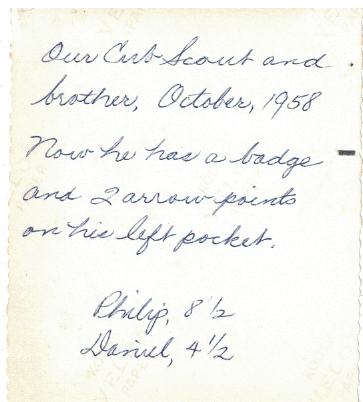 Our Cub Scout and
brother, October, 1958
Now he has a badge
and 2 arrow points
on his left pocket.
Philip, 8 1/2
Daniel, 4 1/2